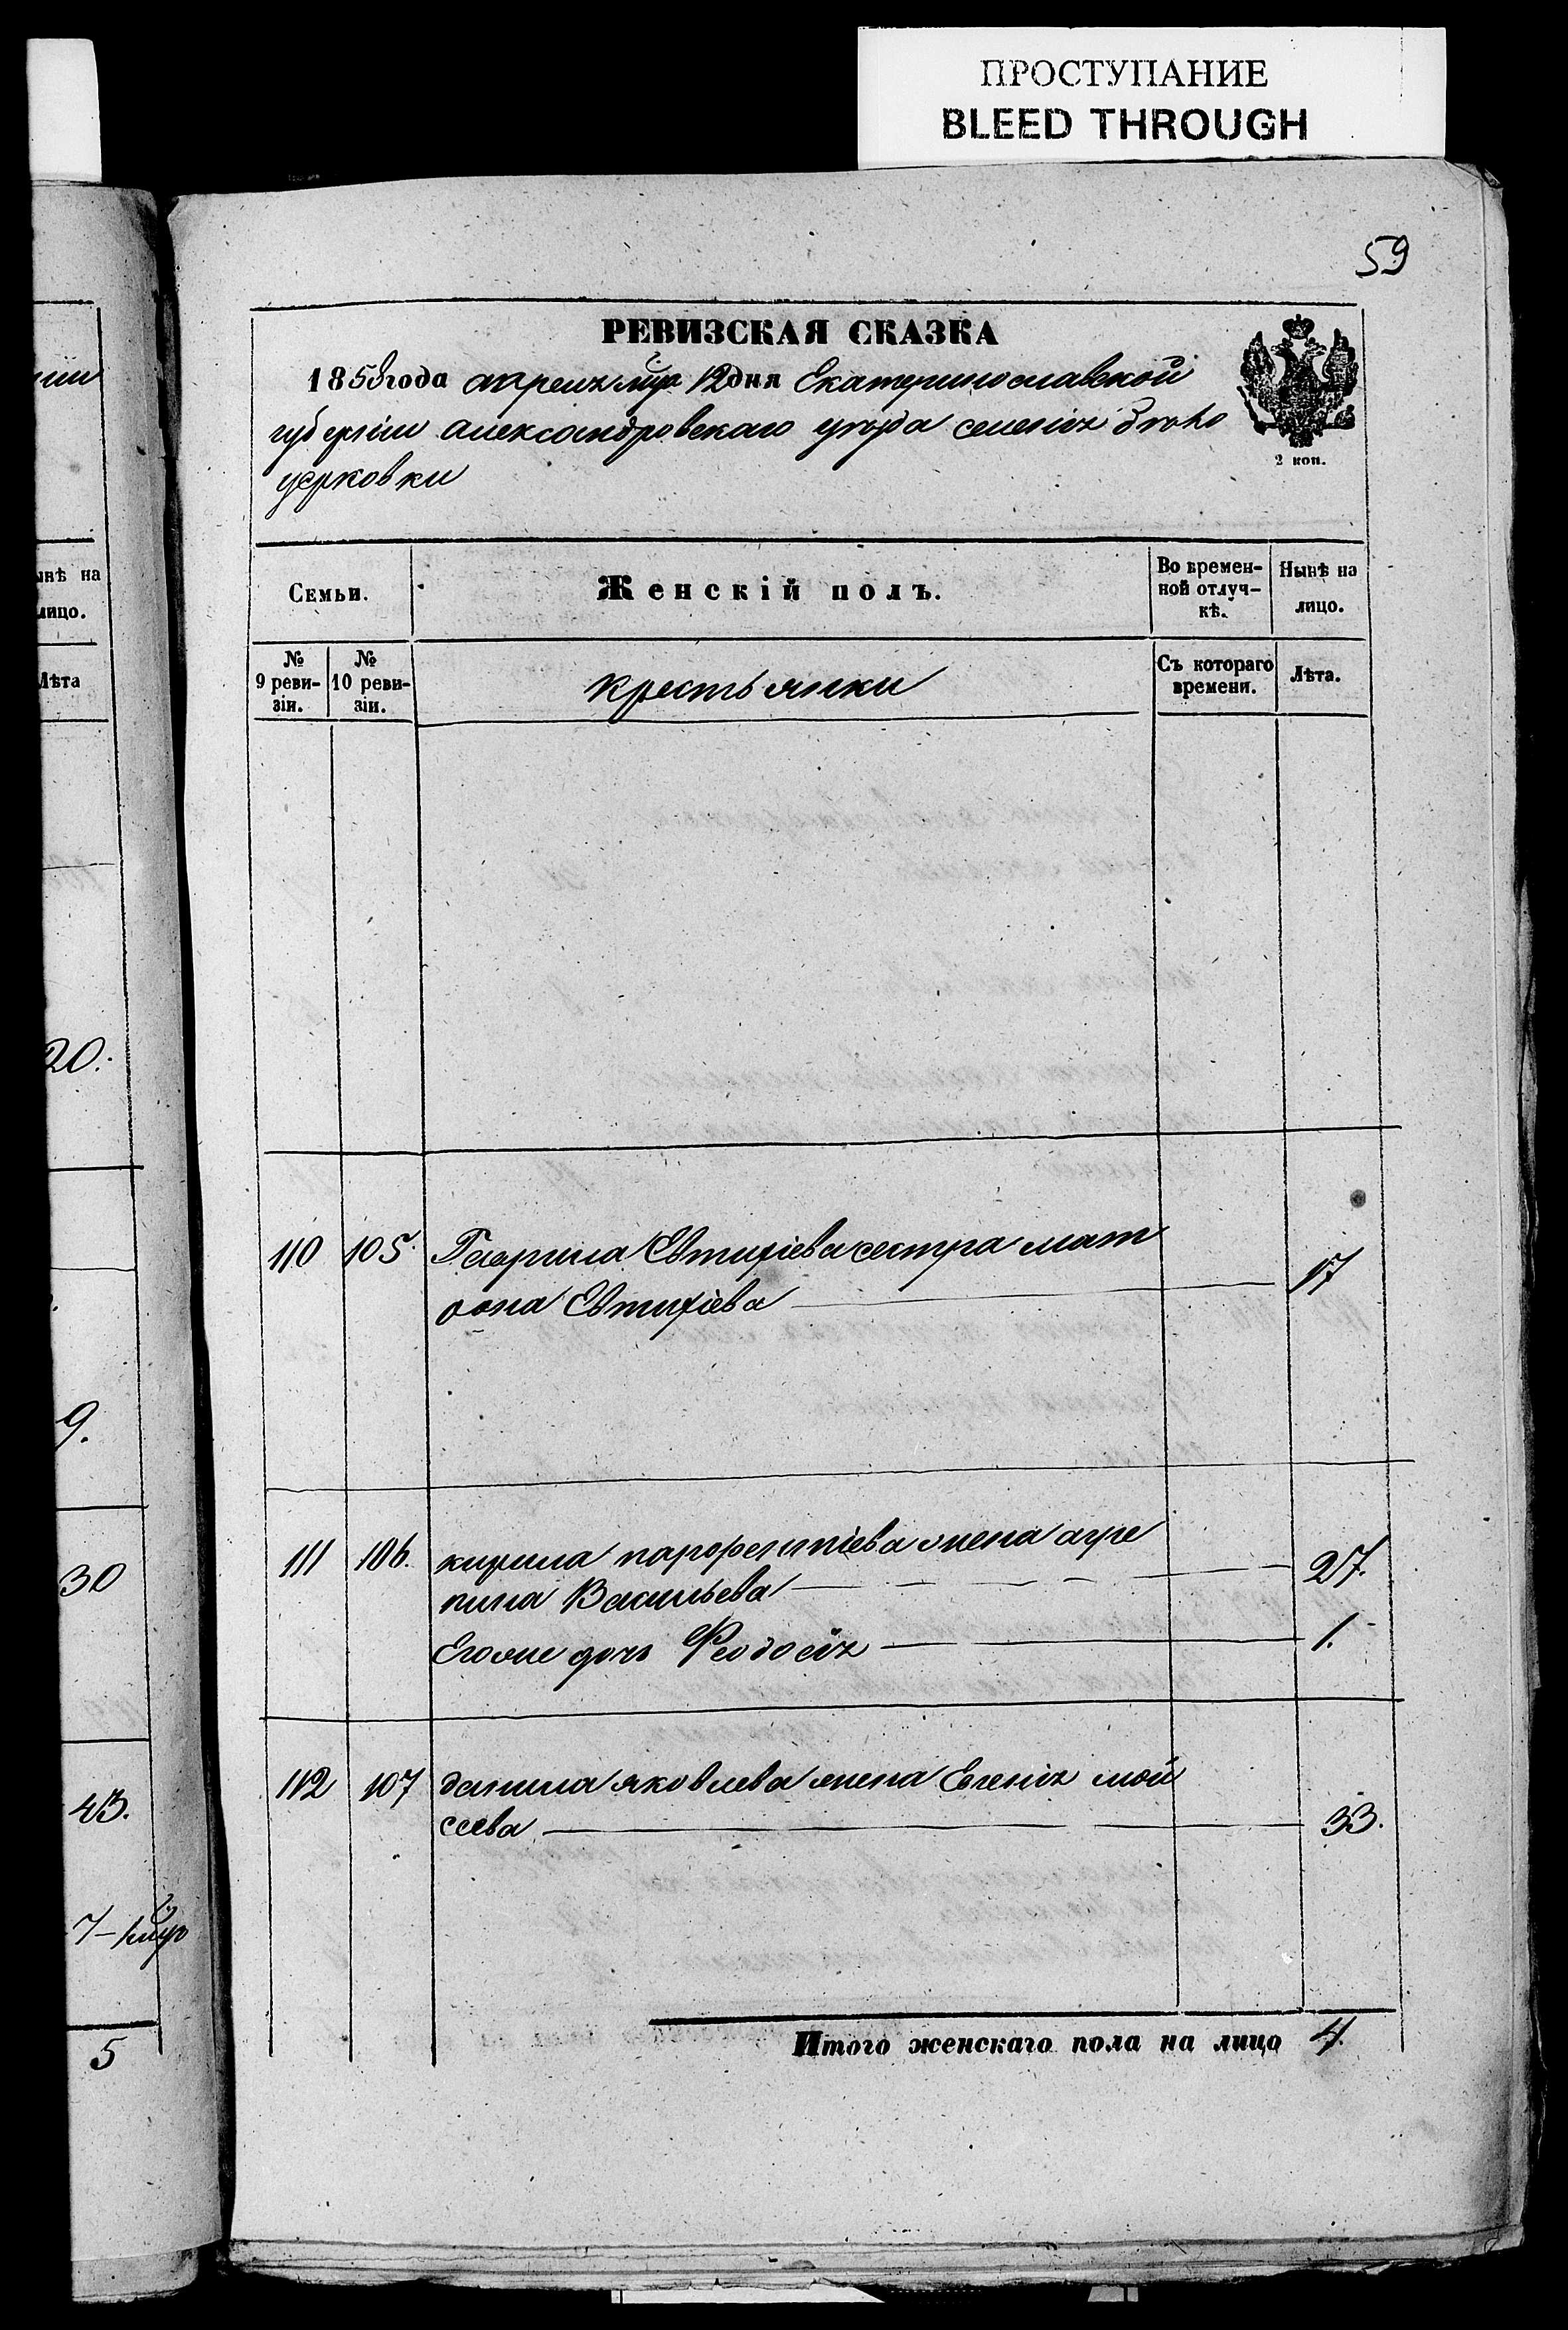 ПРОСТУПАНИЕ
BLEED THROUGH
59
РЕВИЗСКАЯ СКАЗКА
1858 года апреля мца 12 дня Екатеринославской
губерніи александровскаго уезда селенія
церковки
2 коп.
Семьи.
Женскій полъ.
Во времен-
ной отлуч-
кѣ.
Нынѣ на
лицо.
№
9 реви-
зіи.
№
10 реви-
зіи.
крестьянки
Съ котораго
времени.
Лѣта.
110 105. Гаврила Евтихіева сестра мат
рона Евтихіева 17
111 106. кирила парфентіева жена агре
пина Васильева 27.
Егоже дочь Феодосія 1.
112 107 данила яковлева жена Евгенія мой
сеева 33.
Итого женскаго пола на лицо 4.
нѣ на
лицо.
Лѣта
20.
9.
30
43.
7
5